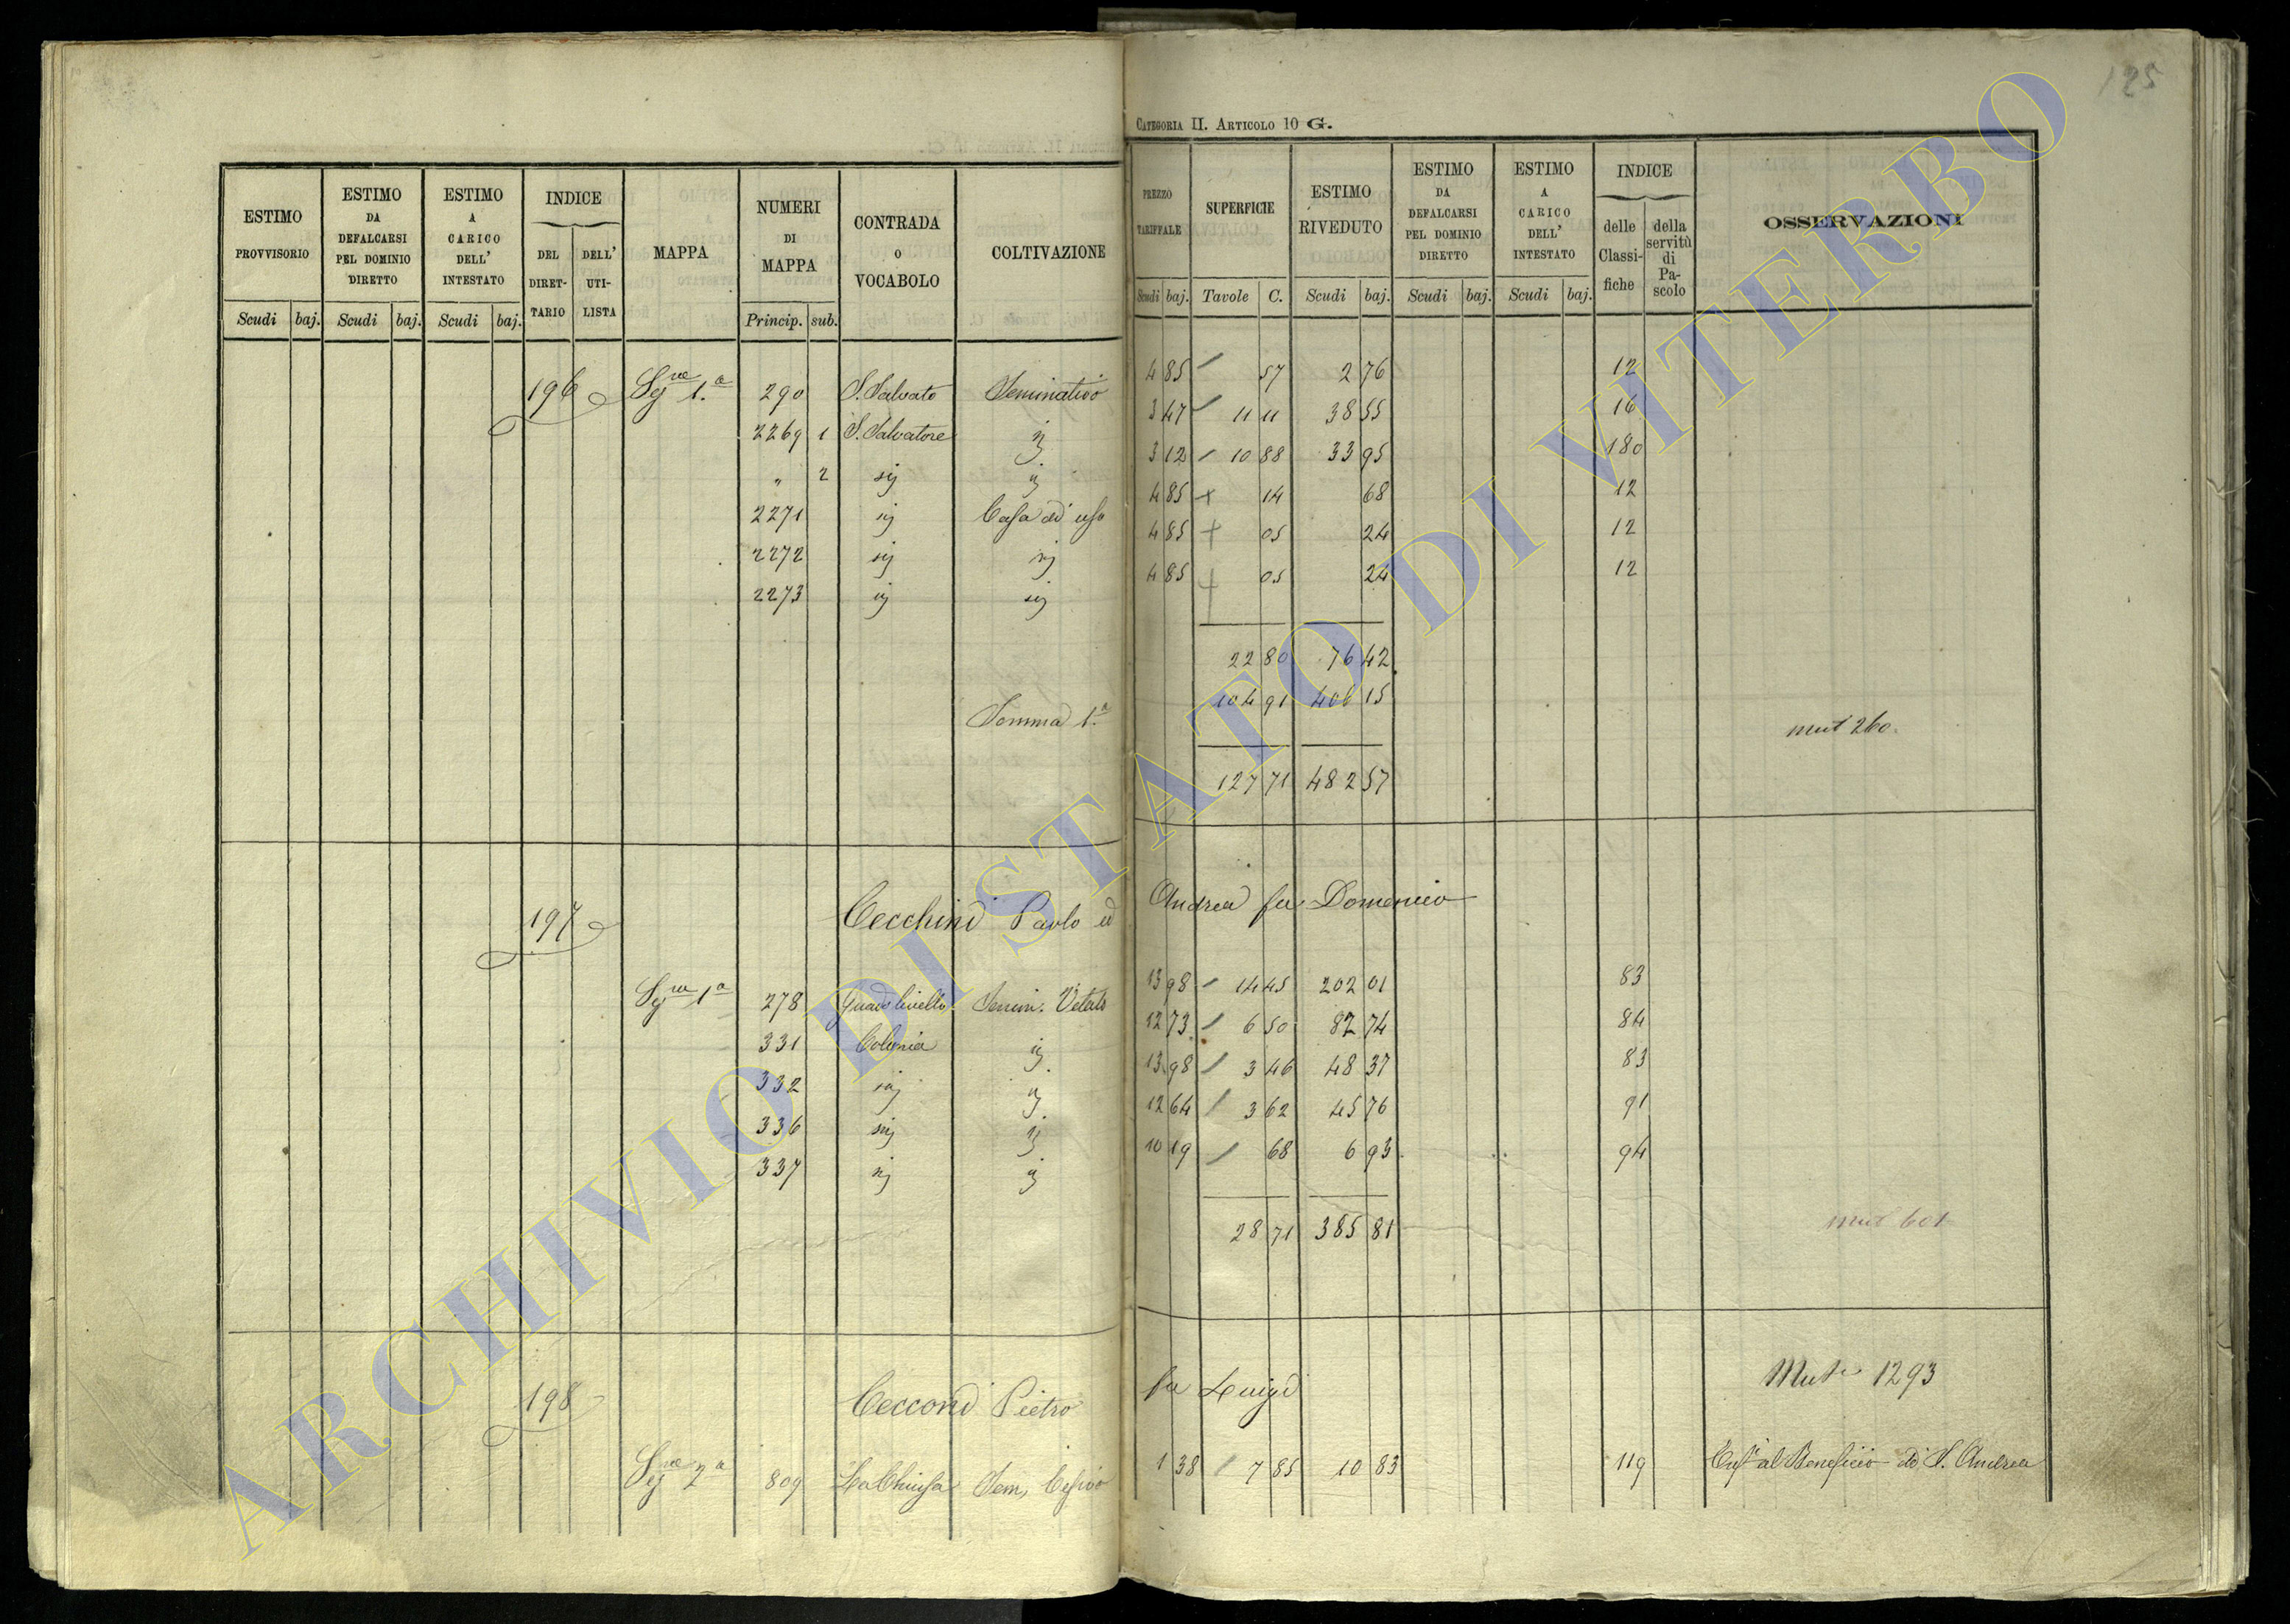 125
CATEGORIA II. ARTICOLO 10 G.
ESTIMO PROVVISORIO Scudi baj.
ESTIMO DA DEFALCARSI PEL DOMINIO DIRETTO Scudi baj.
ESTIMO A CARICO DELL' INTESTATO Scudi baj.
INDICE DEL DIRET-TARIO DELL' UTI-LISTA
MAPPA
NUMERI DI MAPPA Princip. sub.
CONTRADA O VOCABOLO
COLTIVAZIONE
PREZZO TARIFFALE Scudi baj.
SUPERFICIE Tavole C.
ESTIMO RIVEDUTO Scudi baj.
ESTIMO DA DEFALCARSI PEL DOMINIO DIRETTO Scudi baj.
ESTIMO A CARICO DELL' INTESTATO Scudi baj.
INDICE delle Classi-fiche della servitù di Pa-scolo
OSSERVAZIONI
196 Sez.ne 1.a 290 S. Salvato Seminativo 4 85 57 2 76 12
2269 1 S. Salvatore ij 3 47 11 11 38 55 16
" 2 sij ij 3 12 10 88 33 95 180
2271 sij Casa ad uso 4 85 14 68 12
2272 sij sij 4 85 05 24 12
2273 sij sij 4 85 05 24 12
22 80 76 42
Somma 1.a 104 91 406 15
mut 260.
127 71 482 57
197 Cecchini Paolo ed Andrea fu Domenico
Sez.ne 1a 278 Semin. Vitato 13 98 14 45 202 01 83
331 Colonia ij 12 73 6 50 82 74 84
332 sij ij 13 98 3 46 48 37 83
336 sij ij 12 64 3 62 45 76 91
337 sij ij 10 19 68 6 93 94
28 71 385 81
mut 601
198 Cecconi Pietro fu Luigi
Mut.e 1293
Sez.ne 2a 809 La Chiusa Sem. Cesivo 1 38 7 85 10 83 119 al Beneficio di S. Andrea
ARCHIVIO DI STATO DI VITERBO